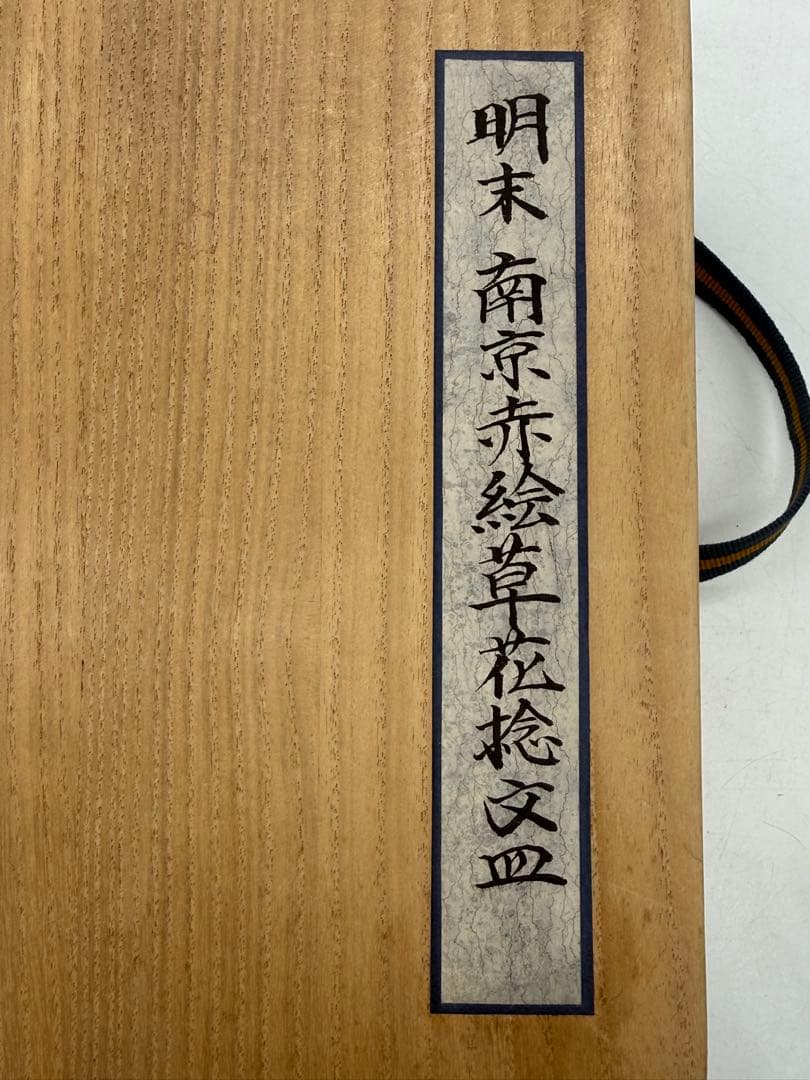 明末 南京赤絵草花捻文皿